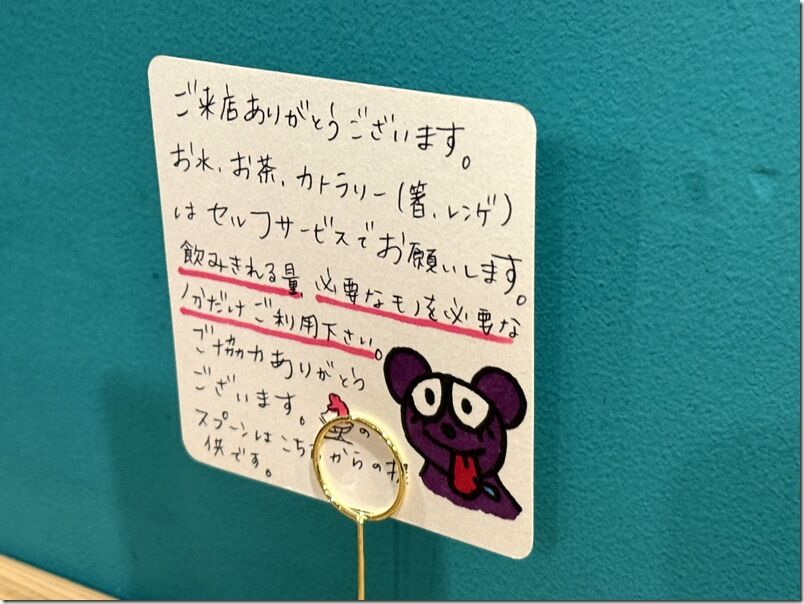 ご来店ありがとうございます。
お水、お茶、カトラリー(箸、レンゲ)
はセルフサービスでお願いします。
飲みきれる量、必要なモノを必要な
分だけご利用下さい。
ご協力ありがとう
ございます。
スプーンはこちらからの
供です。